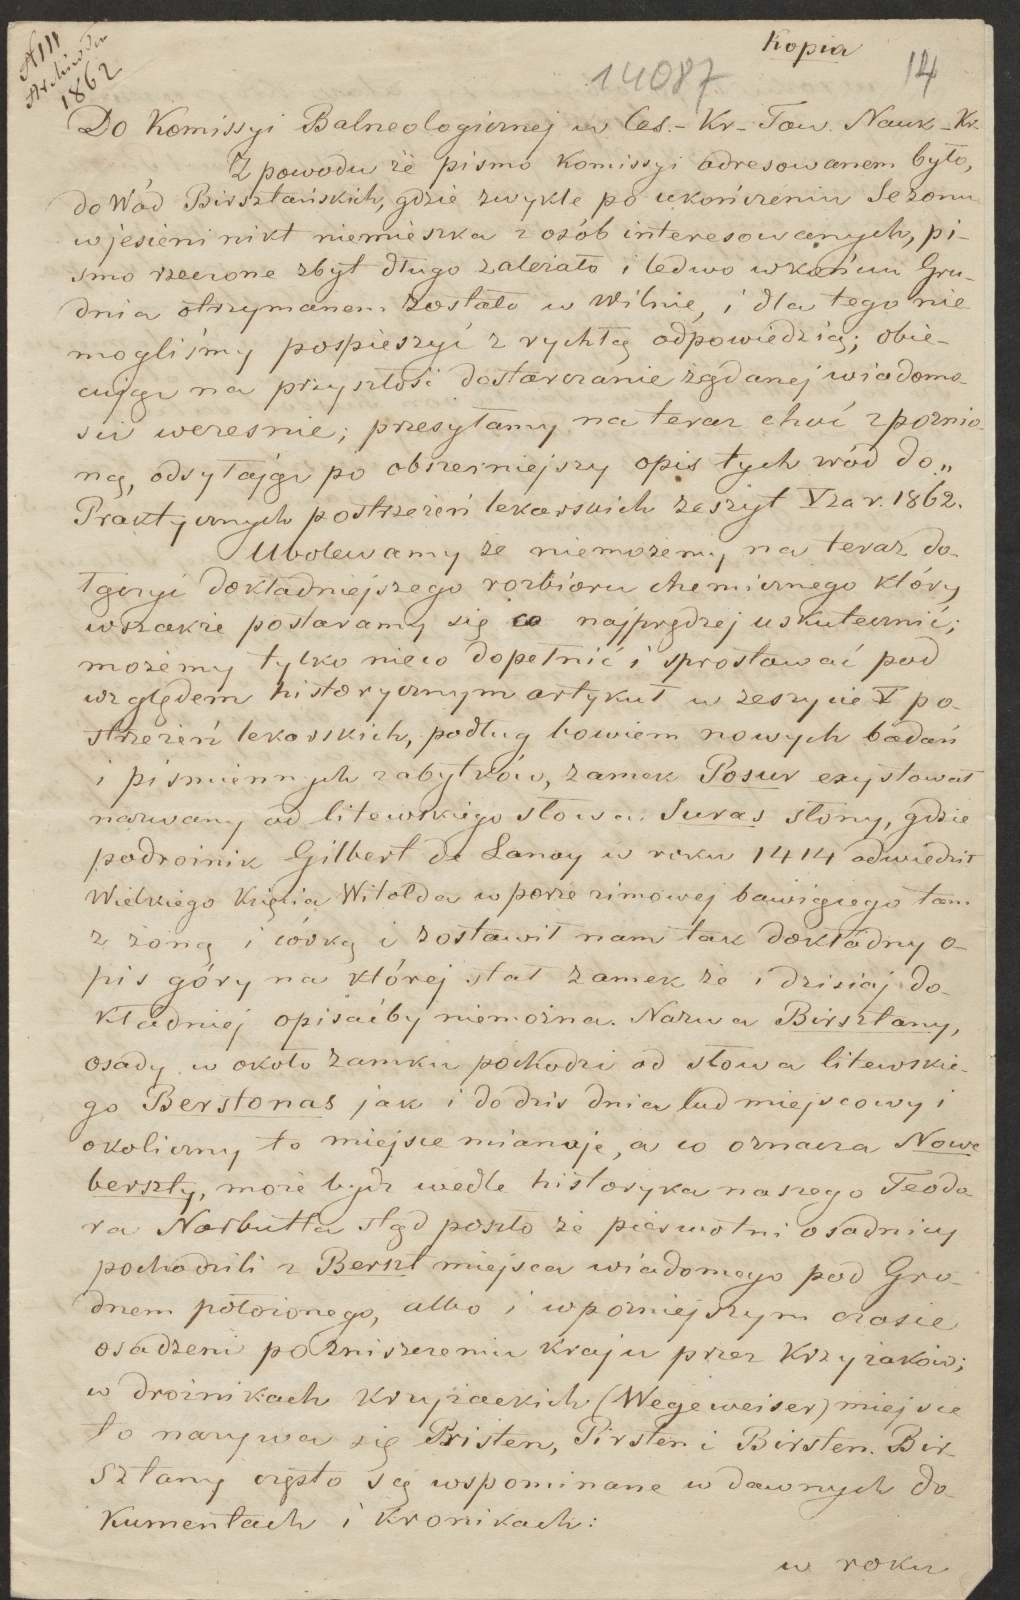 Kopia
AIII
Archiw Tow
1862
14087
14
Do Komissyi Balneologicznej w Ces.- Kr- Tow. Nauk-Kr.
Z powodu że pismo Komissyi adresowanem było,
do Wód Birsztańskich, gdzie zwykle po ukończeniu Sezonu
w jesieni nikt niemieszka z osób interesowanych, pi-
smo rzeczone zbyt długo zależało i ledwo w końcu Gru-
dnia otrzymanem zostało w Wilnie, i dla tego nie
mogliśmy pospieszyć z rychłą odpowiedzią; obie-
cując na przyszłość dostarczanie żądanej wiadomo-
ści wcześnie; przesyłamy na teraz choć zpoźnio-
ną, odsyłając po obszerniejszy opis tych wód do „
Praktycznych postrzeżeń lekarskich zeszyt V za r. 1862.
Ubolewamy że niemożemy na teraz do-
łączyć dokładniejszego rozbioru chemicznego który
wszakże postaramy się co najprędzej uskutecznić;
możemy tylko nieco dopełnić i sprostować pod
względem historycznym artykuł w zeszycie V po-
strzeżeń lekarskich, podług bowiem nowych badań
i piśmiennych zabytków, zamek Posur exystował
nazwany od litewskiego słowa: Suras słony, gdzie
podróżnik Gilbert de Lanoy w roku 1414 odwiedził
Wielkiego Księcia Witolda w porze zimowej bawiącego tam
z żoną i córką i zostawił nam tak dokładny o-
pis góry na której stał zamek że i dzisiaj do-
kładniej opisaćby niemożna. Nazwa Birsztany,
osady w około zamku pochodzi od słowa litewskie-
go Berstonas jak i do dziś dnia lud miejscowy i
okoliczny to miejsce mianuje, a co oznacza Nowe
berszty, może bydź wedle historyka naszego Teodo-
ra Narbutta stąd poszło że pierwotni osadnicy
pochodzili z Berszt miejsca wiadomego pod Gro-
dnem położonego, albo i w poźniejszym czasie
osadzeni po zniszczeniu kraju przez Krzyżaków;
w drożnikach Kryżackich (Wegeweiser) miejsce
to nazywa się Pristen, Pirsten i Birsten. Bir-
sztany często są wspominane w dawnych do-
kumentach i kronikach:
w roku